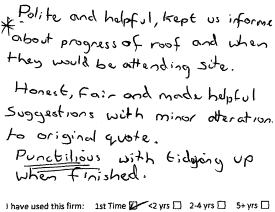 * Polite and helpful, kept us informe
about progress of roof and when
they would be attending site.
Honest, Fair and made helpful
Suggestions with minor alteration
to original quote.
Punctilious with tidying up
when finished.
I have used this firm: 1st Time ☑ <2 yrs ☐ 2-4 yrs ☐ 5+ yrs ☐